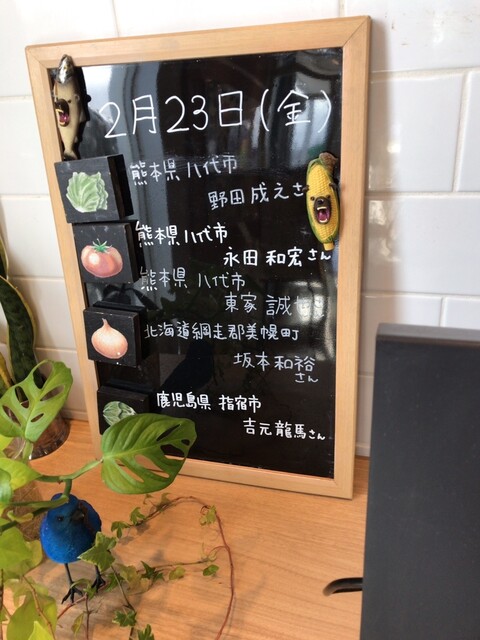 2月23日(金)
熊本県 八代市
野田 成えさ
熊本県 八代市
永田 和宏さん
熊本県 八代市
東家 誠
北海道網走郡美幌町
坂本和裕
さん
鹿児島県 指宿市
吉元 龍馬さん